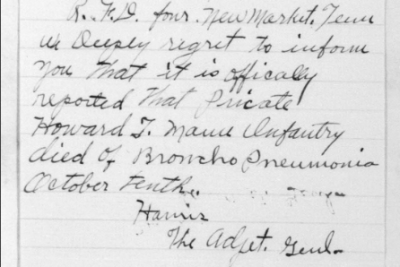 R.F.D. four. New Market. Tenn
We Deeply regret to inform
you that it is officaly
reported that Private
Howard T. Infantry
died of Broncho Pneumonia
October tenth.
Harris
The Adjt. Genl.